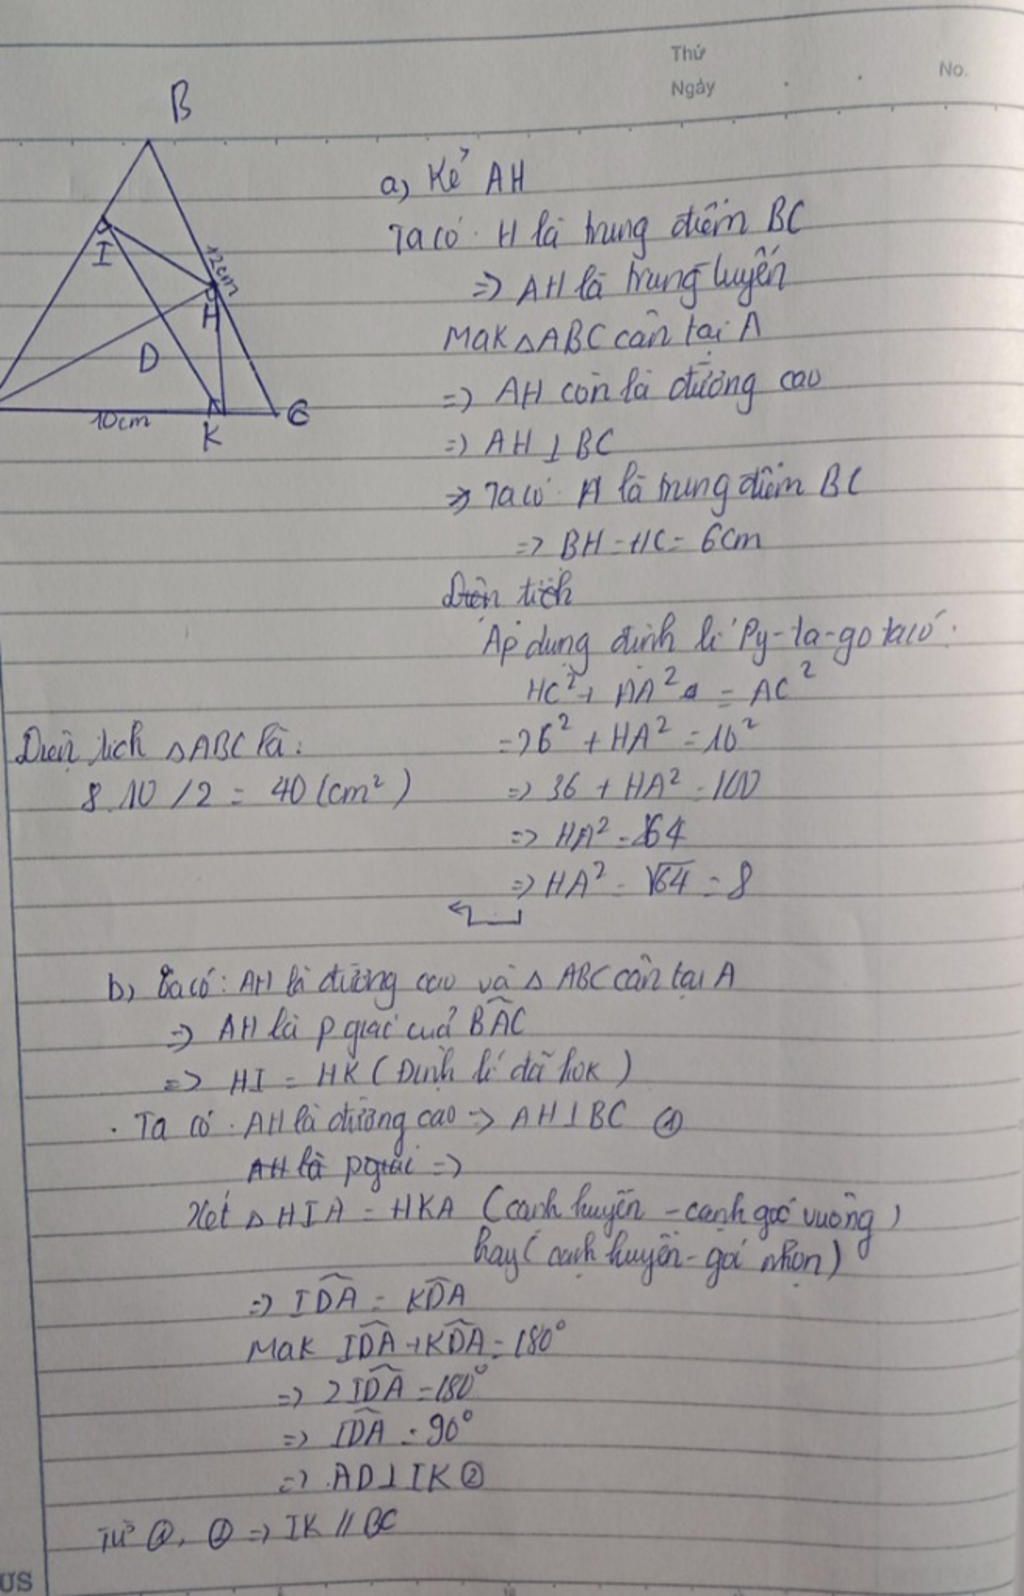 Thứ
Ngày
No.
B
I
12cm
H
D
10cm
K
C
a, Kẻ AH
Ta có: H là trung điểm BC
=> AH là trung tuyến
Mak △ABC cân tại A
=> AH còn là đường cao
=> AH ⊥ BC
=> Ta có: H là trung điểm BC
=> BH = HC = 6cm
Diện tích
Áp dụng định lí Py-ta-go ta có:
HC² + HA² = AC²
=> 6² + HA² = 10²
=> 36 + HA² = 100
=> HA² = 64
=> HA² = √64 = 8
Diện tích △ABC là:
8.10 /2 = 40 (cm²)
b, Ta có: AH là đường cao và △ ABC cân tại A
=> AH là p giác của BÂC
=> HI = HK (Định lí đã hok)
. Ta có: AH là đường cao => AH ⊥ BC ①
AH là pgiác =>
Xét △ HIA = HKA (cạnh huyền - cạnh góc vuông)
hay (cạnh huyền - góc nhọn)
=> ID̂A = KD̂A
Mak ID̂A + KD̂A = 180°
=> 2ID̂A = 180°
=> ID̂A = 90°
=> AD ⊥ IK ②
Từ ①, ② => IK // BC
US